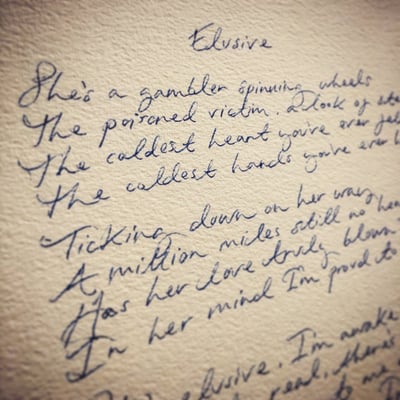 Elusive
She's a gambler spinning wheels
The poisoned victim. A look of
The coldest heart you've ever
The coldest hands you've ever
Ticking down on her way
A million miles still no
Has her love truly blown
In her mind I'm proud to
elusive. I'm awake
real, there's
to me